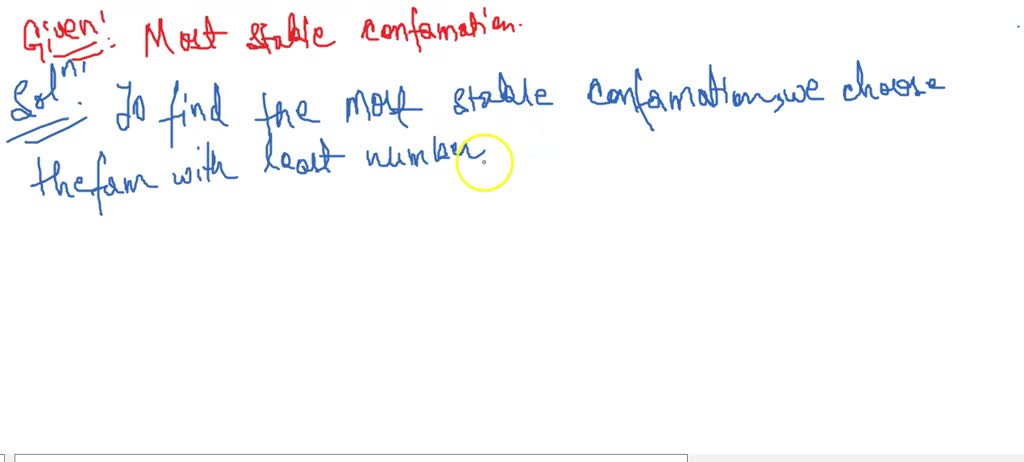 Given: Most stable confamation.
Sol^n: To find the most stable confamation, we choose
the fam with least number